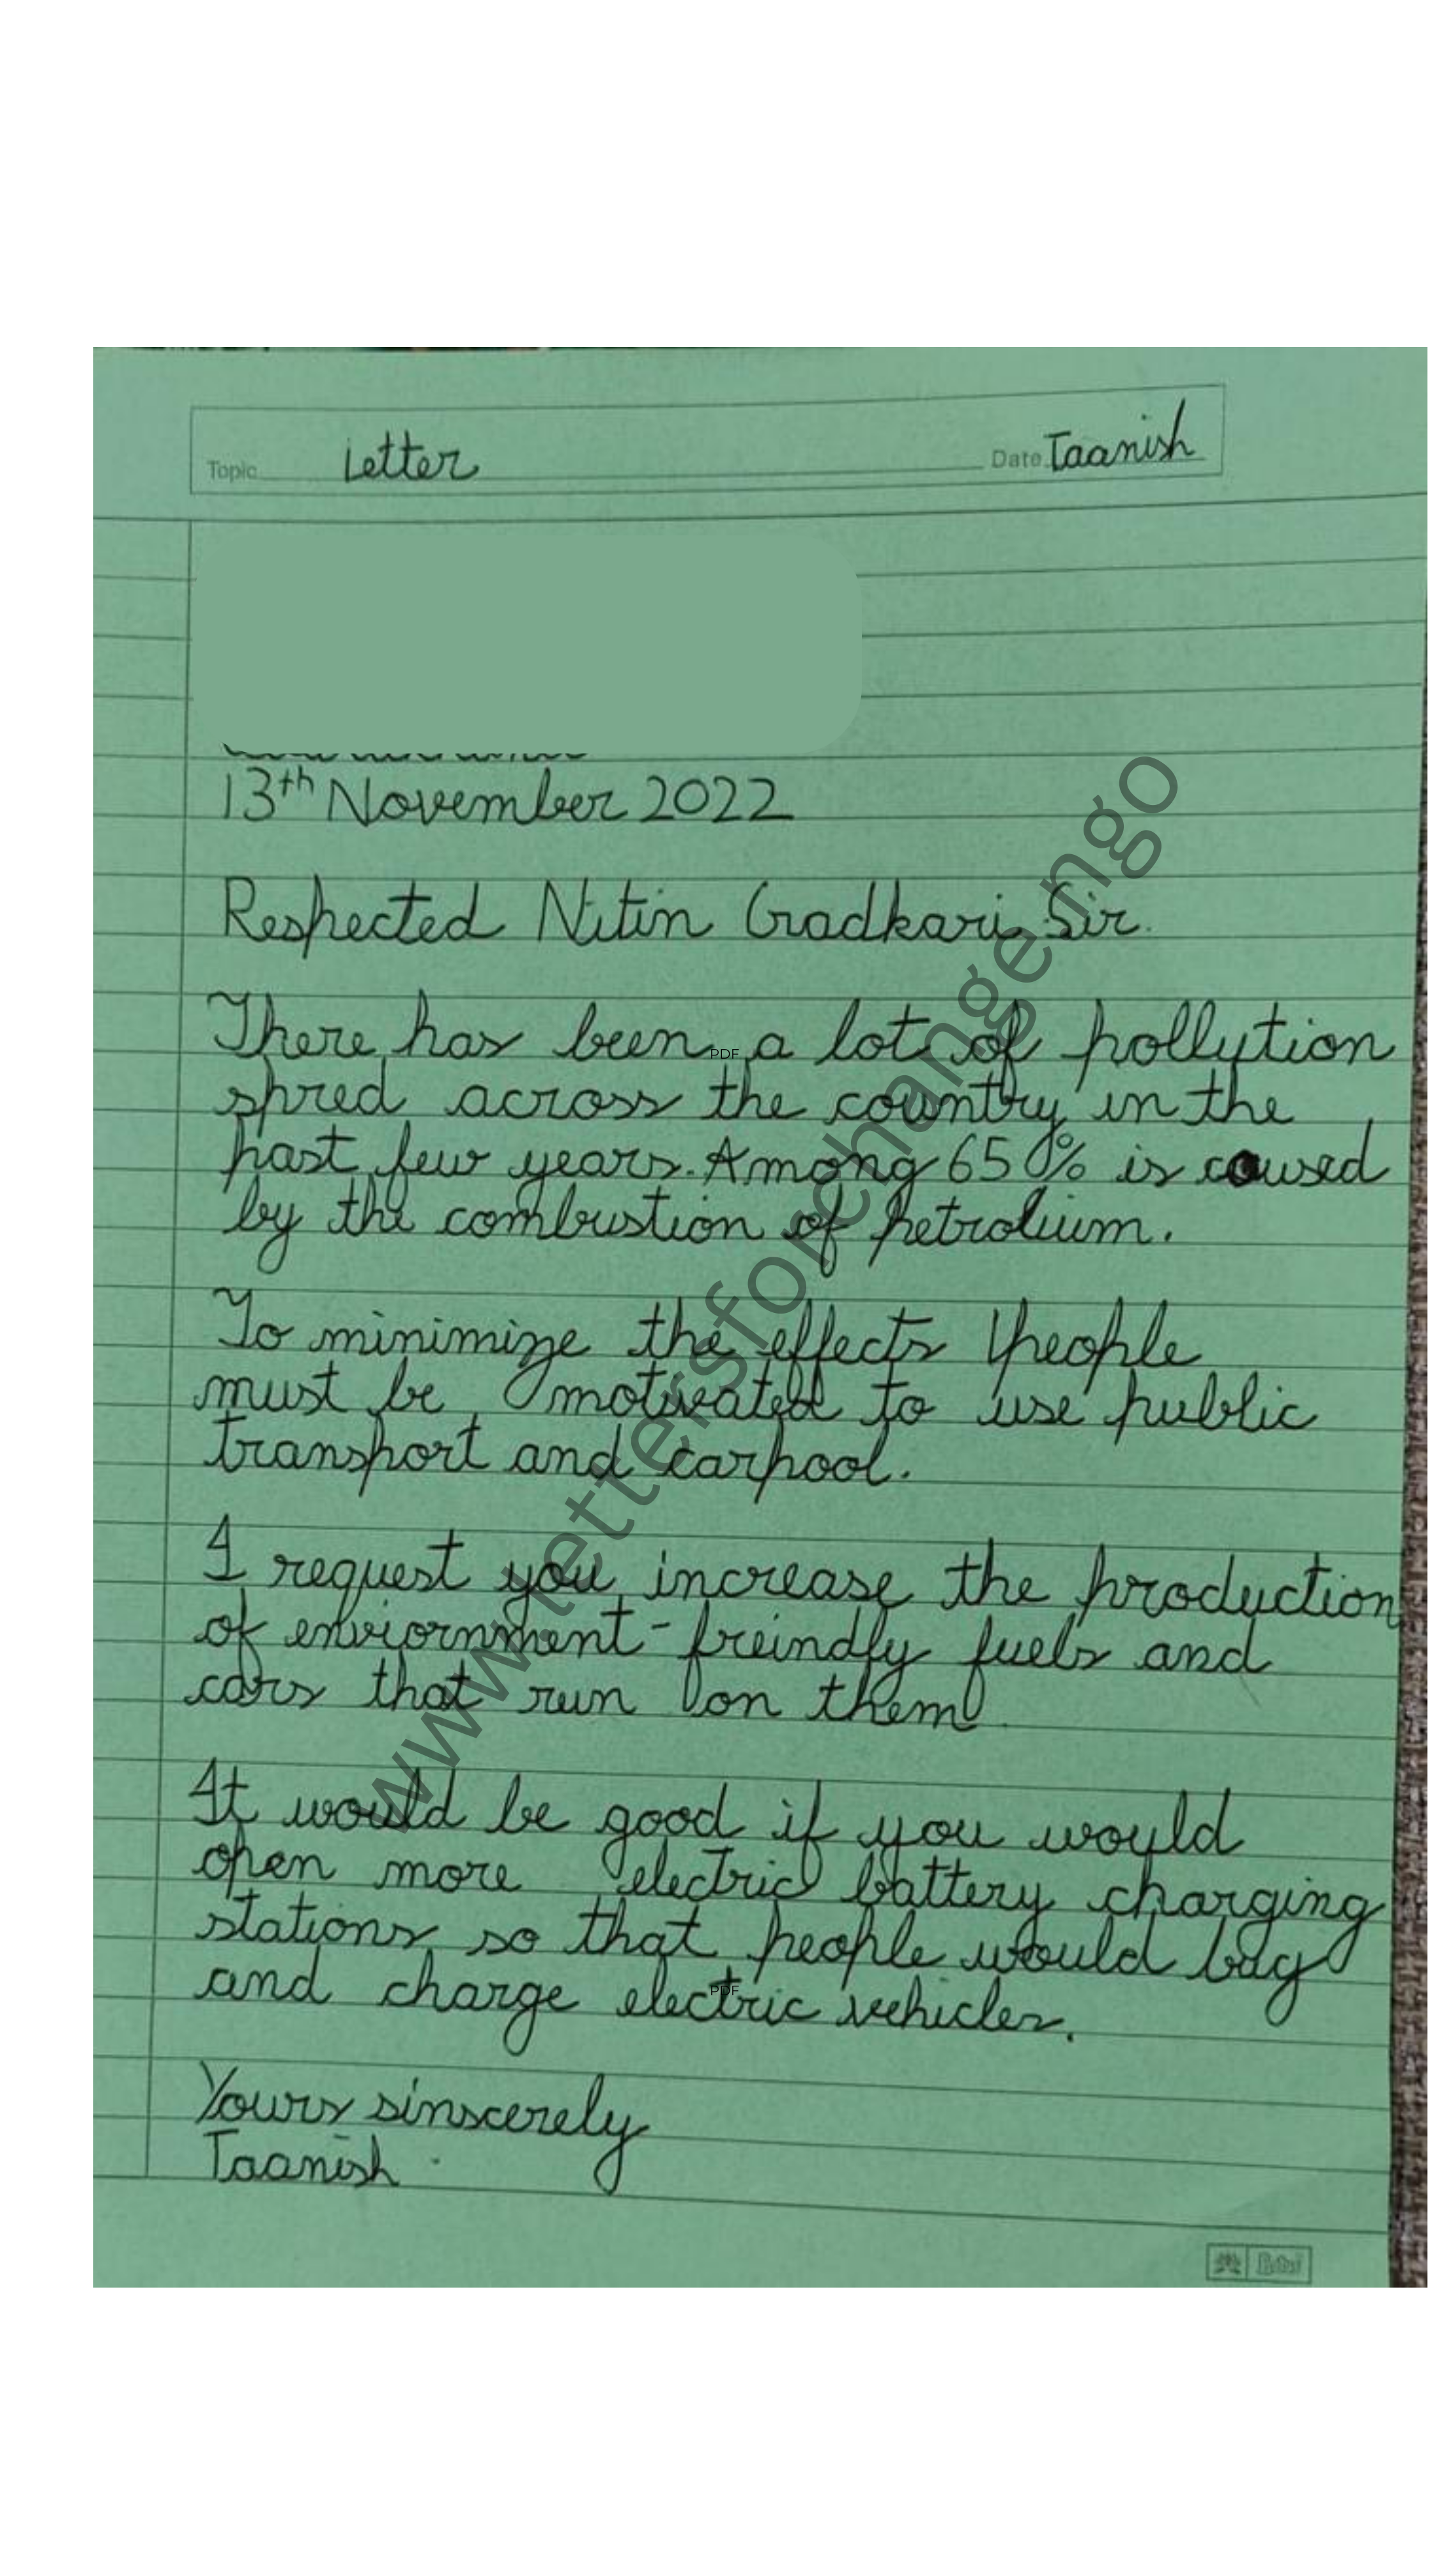 Topic Letter Date Taanish
13th November 2022
Respected Nitin Gadkari Sir.
There has been a lot of pollytion
spred across the country in the
past few years. Among 65% is caused
by the combustion of petrolium.
To minimize the effects people
must be motivated to use public
transport and carpool.
I request you increase the production
of enviornment-freindly fuels and
cars that run on them
It would be good if you would
open more electric battery charging
stations so that people would buy
and charge electric vehicles.
Yours sinscerely
Taanish
www.lettersforchange.ngo
PDF
PDF